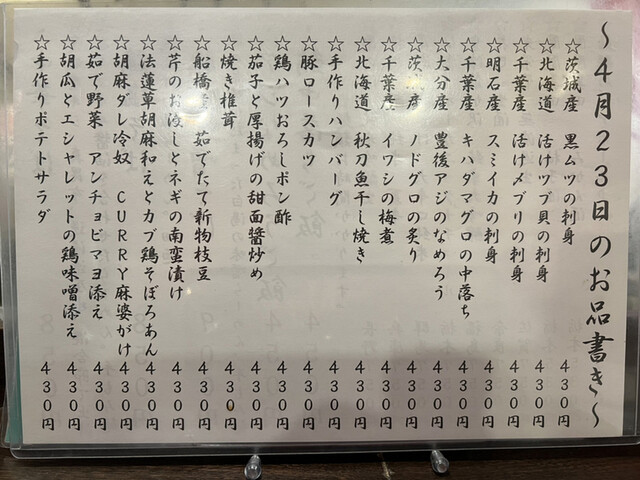 ～４月２３日のお品書き～
☆茨城産 黒ムツの刺身 ４３０円
☆北海道 活けツブ貝の刺身 ４３０円
☆千葉産 活けメブリの刺身 ４３０円
☆明石産 スミイカの刺身 ４３０円
☆千葉産 キハダマグロの中落ち ４３０円
☆大分産 豊後アジのなめろう ４３０円
☆茨城産 ノドグロの炙り ４３０円
☆千葉産 イワシの梅煮 ４３０円
☆北海道 秋刀魚干し焼き ４３０円
☆手作りハンバーグ ４３０円
☆豚ロースカツ ４３０円
☆鶏ハツおろしポン酢 ４３０円
☆茄子と厚揚げの甜面醤炒め ４３０円
☆焼き椎茸 ４３０円
☆船橋産 茹でたて新物枝豆 ４３０円
☆芹のお浸しとネギの南蛮漬け ４３０円
☆法蓮草胡麻和えとカブ鶏そぼろあん ４３０円
☆胡麻ダレ冷奴 ＣＵＲＲＹ麻婆がけ ４３０円
☆茹で野菜 アンチョビマヨ添え ４３０円
☆胡瓜とエシャレットの鶏味噌添え ４３０円
☆手作りポテトサラダ ４３０円